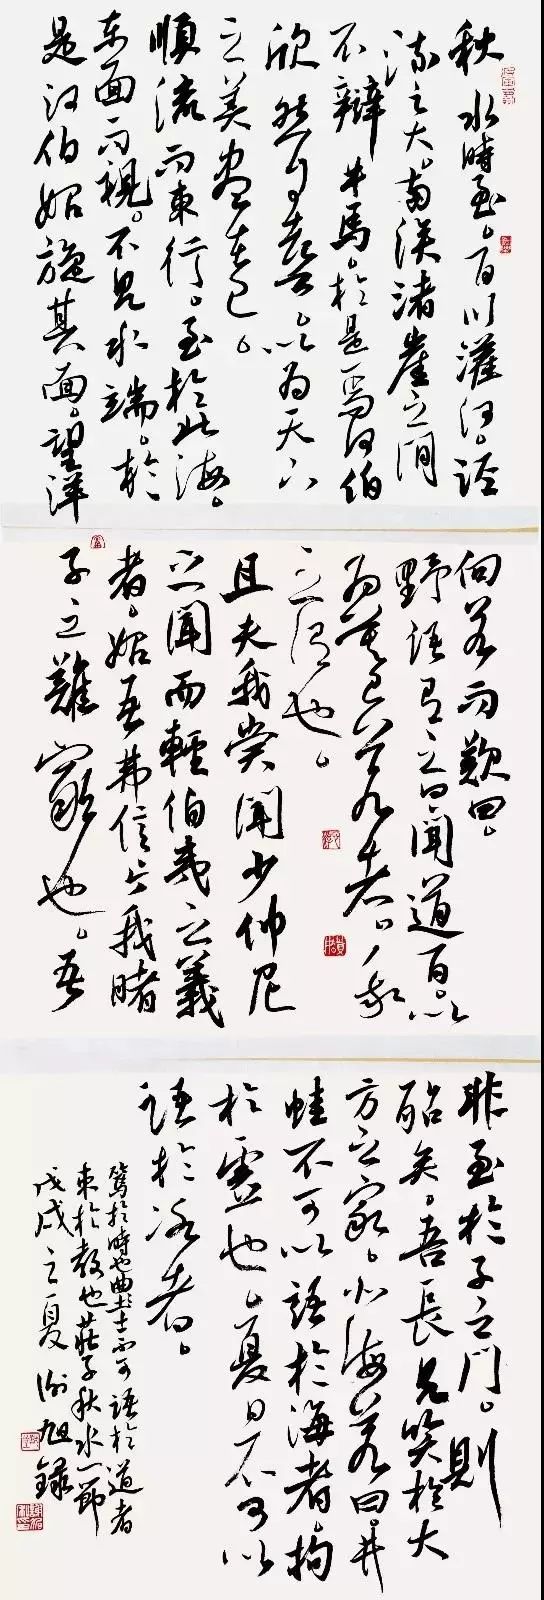 秋水時至。百川灌河。涇
流之大。兩涘渚崖之間
不辯牛馬。於是焉河伯
欣然自喜。以为天下
之美盡在己。
順流而東行。至於北海。
东面而視。不見水端。於
是河伯始旋其面。望洋
向若而歎曰。
野語有之曰聞道百。以
为莫己若者。我
之謂也。
且夫我嘗聞少仲尼
之聞而輕伯夷之義
者。始吾弗信。今我睹
子之難窮也。吾
非至於子之門。則
殆矣。吾長見笑於大
方之家。北海若曰。井
蛙不可以語於海者。拘
於虛也。夏日不可以
語於冰者。
篤於時也曲士不可語於道者
束於教也莊子秋水一節
戊戌之夏 謝旭錄